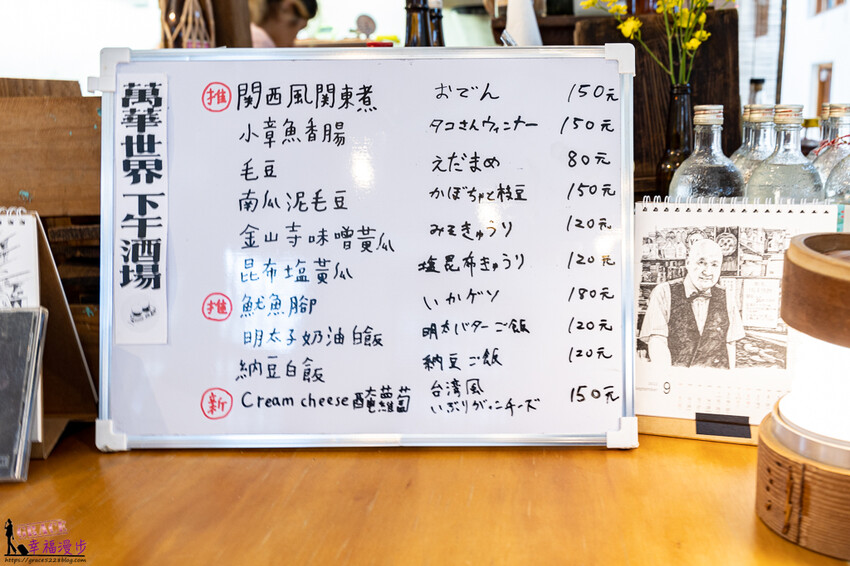 萬華世界下午酒場
推 関西風関東煮 おでん 150元
小章魚香腸 タコさんウィンナー 150元
毛豆 えだまめ 80元
南瓜泥毛豆 かぼちゃと枝豆 150元
金山寺味噌黃瓜 みそきゅうり 120元
昆布塩黃瓜 塩昆布きゅうり 120元
推 魷魚腳 いかゲソ 180元
明太子奶油白飯 明太バターご飯 120元
納豆白飯 納豆ご飯 120元
新 Cream cheese醃蘿蔔 台湾風 150元
いぶりが。ンチーズ
9
GRACE
幸福漫步
https://grace5228blog.com